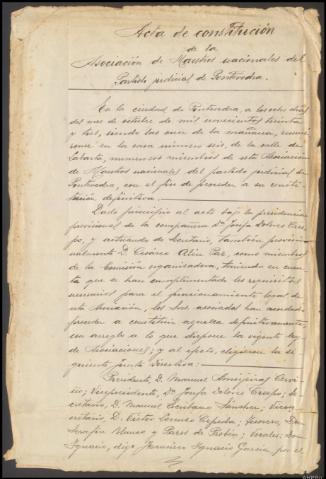 Acta de constitución
de la
Asociación de Maestros nacionales del
Partido judicial de Pontevedra.
En la ciudad de Pontevedra, a los ocho días
del mes de octubre de mil novecientos treinta
y tres, siendo las once de la mañana, reuni-
éronse en la casa número seis, de la calle de
numerosos miembros de esta Asociación
de Maestros nacionales del partido judicial de
Pontevedra, con el fin de proceder a su consti-
tución definitiva.
Dado principio al acto bajo la presidencia
provisional de la compañera Dª Josefa Dolores Cres-
po, y actuando de Secretario, también provisio-
nalmente D. Cesáreo como miembros
de la Comisión organizadora, teniendo en cuen-
ta que se han cumplimentado los requisitos
necesarios para el funcionamiento legal de
esta Asociación, los Sres. asociados han acordado
proceder a constituir aquella definitivamente,
con arreglo a lo que dispone la vigente ley
de Asociaciones; y al efecto, eligieron la si-
guiente Junta Directiva:
Presidente, D. Manuel Cervi-
ño; Vicepresidente, Dª Josefa Dolores Crespo; Se-
cretario, D. Manuel Sánchez; Vicese-
cretario, D. Víctor Lorenzo Cepeda; Tesorero, Don
Serafín Blanco y Vocales: Don
Ignacio, digo Francisco Ignacio García, por el